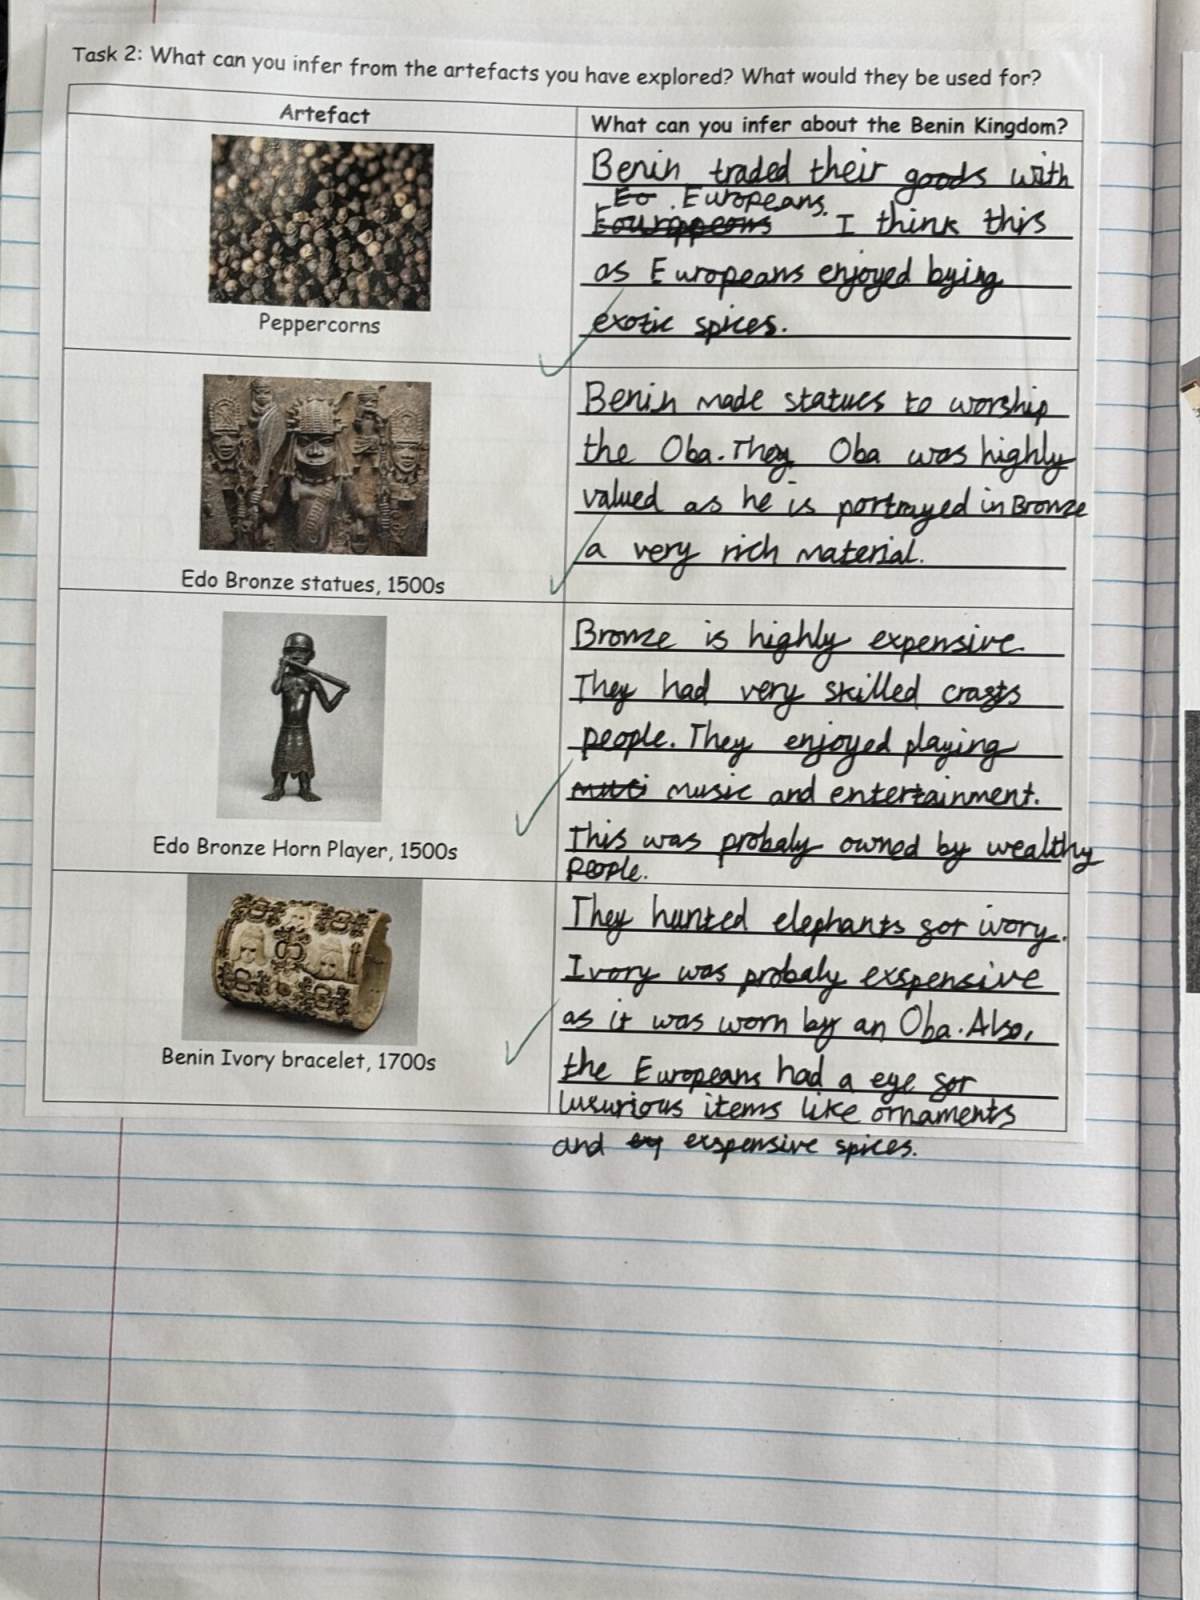 Task 2: What can you infer from the artefacts you have explored? What would they be used for?
Artefact
What can you infer about the Benin Kingdom?
Peppercorns
Benin traded their goods with
Eo Europeans.
Eourppeons I think this
as Europeans enjoyed bying
exotic spices.
Edo Bronze statues, 1500s
Benin made statues to worship
the Oba. They Oba was highly
valued as he is portrayed in Bronze
a very rich material.
Edo Bronze Horn Player, 1500s
Bronze is highly expensive.
They had very skilled crafts
people. They enjoyed playing
music and entertainment.
This was probaly owned by wealthy
people.
Benin Ivory bracelet, 1700s
They hunted elephants for ivory.
Ivory was probaly exspensive
as it was worn by an Oba. Also,
the Europeans had a eye for
luxurious items like ornaments
and exspensive spices.